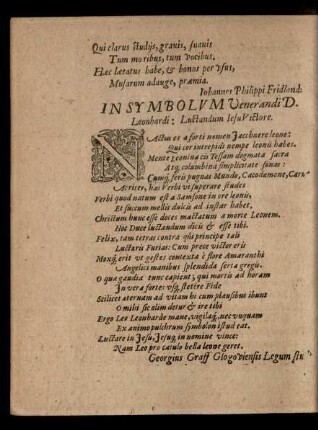 Qui clarus studijs, gravis, suavis
Tum moribus, tum vocibus.
Hæc lætatus habe, & bonos per usus,
Musarum adauge, præmia.
Iohannes Philippi Fridland.
IN SYMBOLVM Venerandi D.
Leonhardi: Luctandum Iesu Victore.
NActus es a forti nomen Iacchuere leone:
Qui cor intrepidi nempe leonis habes.
Mente gemina cis Tessam dogmata sacra
Atq; columbina simplicitate sonas:
Cumq; feris pugnas Mundo, Cacodemone, Carn
Acriter, has Verbi ut superare studes
Verbi quod natum est a Samsone in ore leonis,
Et succum mellis dulcis ad instar habet,
Christum hunc esse doces mactatum a morte Leonem.
Hoc Duce luctandum dicis & esse tibi.
Felix, tam tetras contra qui principe tali
Luctaris Furias: Cum prece victor eris
Moxq; erit ut gestes contexta è flore Amaranthi
Angelicis manibus splendida serta gregis.
O qua gaudia tunc capient, qui martia ad horam
In vera fortes usq; stetere Fide
Scilicet æternam ad vitam hi cum plausibus ibunt
O mihi sic olim detur & ire tibi
Ergo Leo Leonharde mane, vigilaq; nec unquam
Ex animo pulchrum symbolon istud eat.
Luctare in Jesu, Jesuq; in nomine vince:
Nam Leo pro catulo bella leone geret.
Georgius Graff Glogoviensis Legum stu